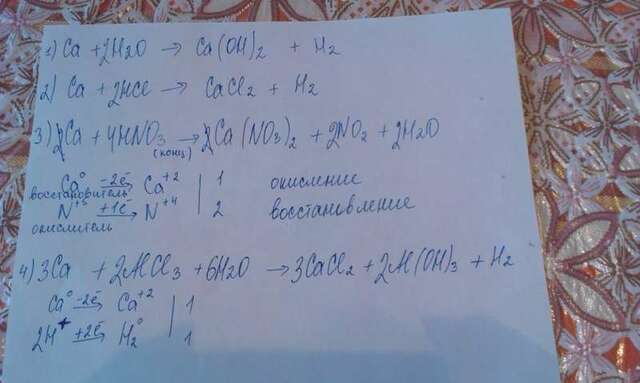 1) Ca + 2H2O → Ca(OH)2 + H2
2) Ca + 2HCl → CaCl2 + H2
3) 2Ca + 4HNO3 → 2Ca(NO3)2 + 2NO2 + 2H2O
(конц)
Ca⁰ -2ē → Ca⁺² | 1 окисление
восстановитель
N⁺⁵ +1ē → N⁺⁴ | 2 восстановление
окислитель
4) 3Ca + 2AlCl3 + 6H2O → 3CaCl2 + 2Al(OH)3 + H2
Ca⁰ -2ē → Ca⁺² | 1
2H⁺ +2ē → H2⁰ | 1